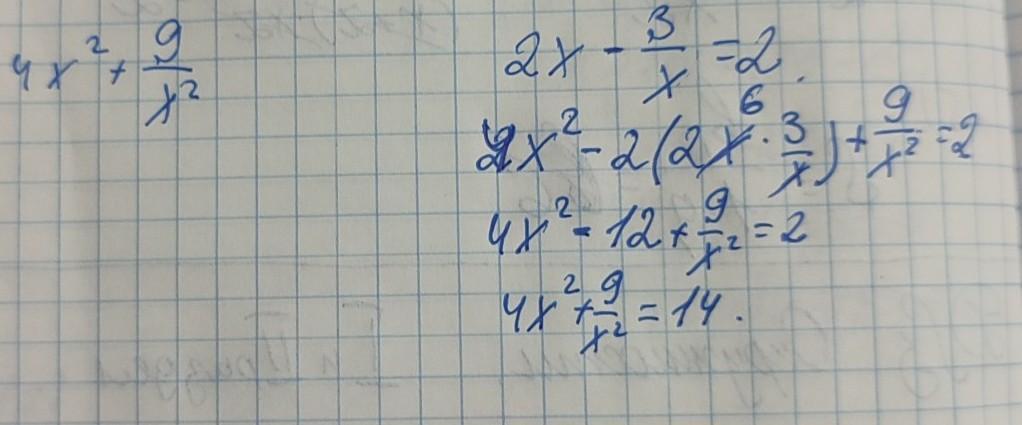 4x² + 9/x²
2x - 3/x = 2.
4x² - 2(2x · 3/x) + 9/x² = 2
6
4x² - 12 + 9/x² = 2
4x² + 9/x² = 14.